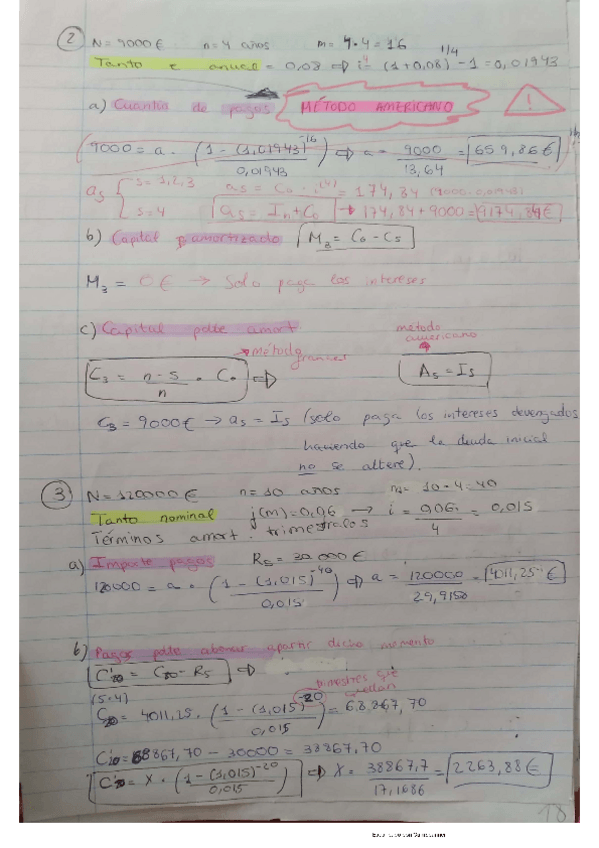 ② N = 9000€ n = 4 años m = 4·4 = 16
Tanto e anual = 0,08 ⇒ i⁴ (1+0,08)^1/4 - 1 = 0,01943
a) Cuantía de pagos MÉTODO AMERICANO !
9000 = a · (1 - (1,01943)^-16 / 0,01943) ⇒ a = 9000 / 13,64 = 659,86€
as { s = 1,2,3 as = C0 · i(4) = 174,84 (9000·0,01943)
s = 4 as = In + C0 → 174,84 + 9000 = 9174,84€
b) Capital amortizado M3 = C0 - Cs
M3 = 0€ → Solo paga los intereses
c) Capital pdte amort
método americano
→ método francés
C3 = n-s / n · C0 ⇒ As = Is
C3 = 9000€ → as = Is (solo paga los intereses devengados
haciendo que la deuda inicial
no se altere).
③ N = 120000€ n = 10 años m = 10·4 = 40
Tanto nominal j(m) = 0,06 → i = 0,06 / 4 = 0,015
Términos amort. trimestrales
a) Importe pagos Rs = 30 000€
120000 = a · (1 - (1,015)^-40 / 0,015) ⇒ a = 120000 / 29,9158 = 4011,25€
b) Pagos pdte abonar apartir dicho momento
C'20 = C20 - Rs ⇒
(5·4) trimestres que quedan
C20 = 4011,25 · (1 - (1,015)^-20 / 0,015) = 68867,70
C'20 = 68867,70 - 30000 = 38867,70
C'20 = X · (1 - (1,015)^-20 / 0,015) ⇒ X = 38867,7 / 17,1686 = 2263,88€
18